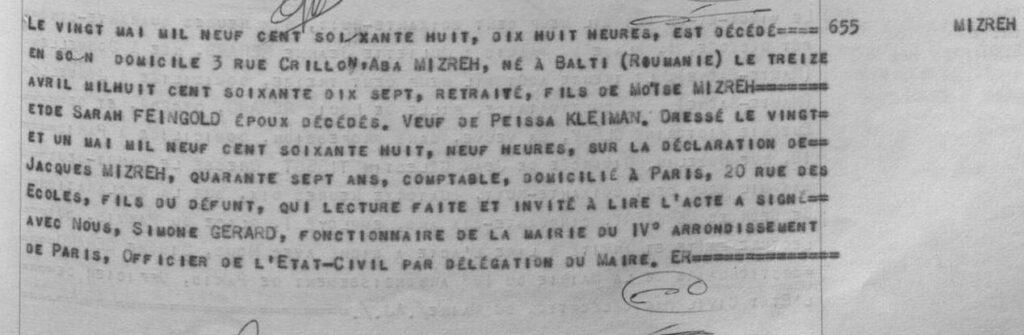 LE VINGT MAI MIL NEUF CENT SOIXANTE HUIT, DIX HUIT HEURES, EST DÉCÉDÉ==== 655 MIZREH
EN SON DOMICILE 3 RUE CRILLON, ABA MIZREH, NÉ À BALTI (ROUMANIE) LE TREIZE
AVRIL MILHUIT CENT SOIXANTE DIX SEPT, RETRAITÉ, FILS DE MOÏSE MIZREH=======
ETDE SARAH FEINGOLD ÉPOUX DÉCÉDÉS. VEUF DE PEISSA KLEIMAN. DRESSÉ LE VINGT=
ET UN MAI MIL NEUF CENT SOIXANTE HUIT, NEUF HEURES, SUR LA DÉCLARATION DE==
JACQUES MIZREH, QUARANTE SEPT ANS, COMPTABLE, DOMICILIÉ À PARIS, 20 RUE DES
ECOLES, FILS DU DÉFUNT, QUI LECTURE FAITE ET INVITÉ À LIRE L'ACTE A SIGNÉ==
AVEC NOUS, SIMONE GERARD, FONCTIONNAIRE DE LA MAIRIE DU IV° ARRONDISSEMENT
DE PARIS, OFFICIER DE L'ETAT-CIVIL PAR DÉLÉGATION DU MAIRE. ER==============